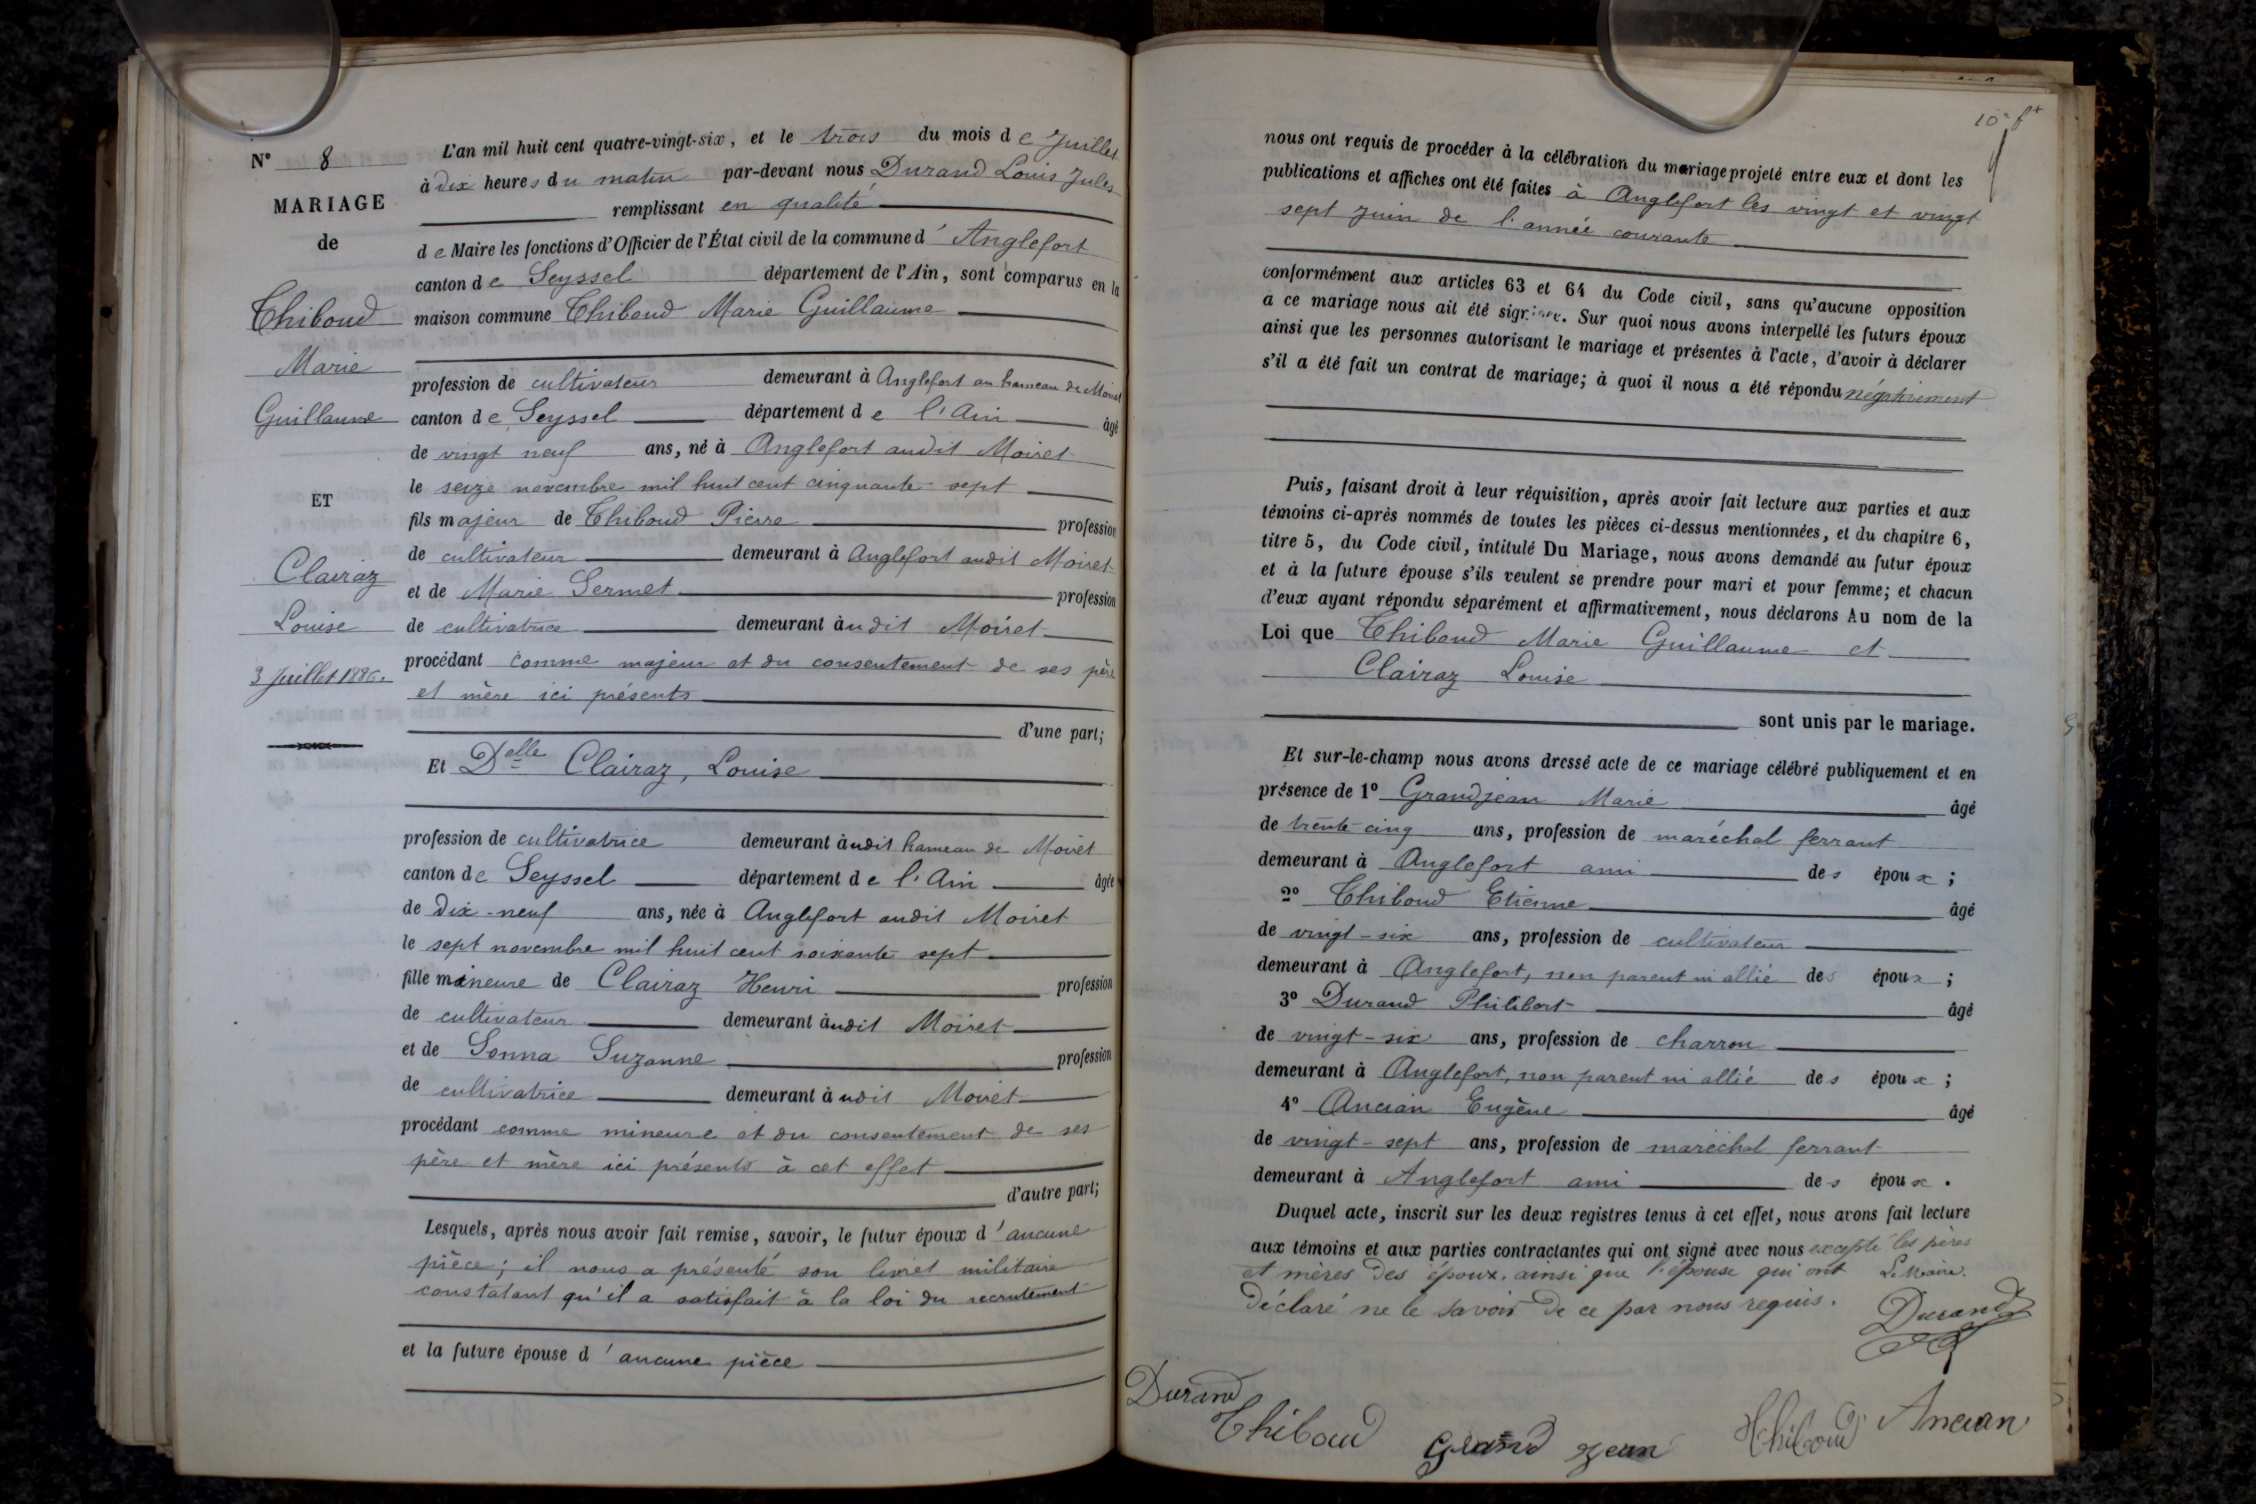 N° 8
MARIAGE
de
Thiboud
Marie
Guillaume
ET
Clairaz
Louise
3 Juillet 1886.
L'an mil huit cent quatre-vingt-six, et le trois du mois de Juillet
à dix heures du matin par-devant nous Durand Louis Jules
remplissant en qualité
de Maire les fonctions d'Officier de l'État civil de la commune d'Anglefort
canton de Seyssel département de l'Ain, sont comparus en la
maison commune Thiboud Marie Guillaume
profession de cultivateur demeurant à Anglefort au hameau de Moiret
canton de Seyssel département de l'Ain âgé
de vingt neuf ans, né à Anglefort audit Moiret
le seize novembre mil huit cent cinquante-sept
fils majeur de Thiboud Pierre profession
de cultivateur demeurant à Anglefort audit Moiret
et de Marie Sermet profession
de cultivatrice demeurant àudit Moiret
procédant comme majeur et du consentement de ses père
et mère ici présents
d'une part;
Et Delle Clairaz, Louise
profession de cultivatrice demeurant àudit hameau de Moiret
canton de Seyssel département de l'Ain âgée
de dix-neuf ans, née à Anglefort audit Moiret
le sept novembre mil huit cent soixante sept
fille mineure de Clairaz Henri profession
de cultivateur demeurant àudit Moiret
et de Sonna Suzanne profession
de cultivatrice demeurant àudit Moiret
procédant comme mineure et du consentement de ses
père et mère ici présents à cet effet
d'autre part;
Lesquels, après nous avoir fait remise, savoir, le futur époux d'aucune
pièce; il nous a présenté son livret militaire
constatant qu'il a satisfait à la loi du recrutement
et la future épouse d'aucune pièce
nous ont requis de procéder à la célébration du mariage projeté entre eux et dont les
publications et affiches ont été faites à Anglefort les vingt et vingt
sept juin de l'année courante
conformément aux articles 63 et 64 du Code civil, sans qu'aucune opposition
à ce mariage nous ait été signifiée. Sur quoi nous avons interpellé les futurs époux
ainsi que les personnes autorisant le mariage et présentes à l'acte, d'avoir à déclarer
s'il a été fait un contrat de mariage; à quoi il nous a été répondu négativement
Puis, faisant droit à leur réquisition, après avoir fait lecture aux parties et aux
témoins ci-après nommés de toutes les pièces ci-dessus mentionnées, et du chapitre 6,
titre 5, du Code civil, intitulé Du Mariage, nous avons demandé au futur époux
et à la future épouse s'ils veulent se prendre pour mari et pour femme; et chacun
d'eux ayant répondu séparément et affirmativement, nous déclarons Au nom de la
Loi que Thiboud Marie Guillaume et
Clairaz Louise
sont unis par le mariage.
Et sur-le-champ nous avons dressé acte de ce mariage célébré publiquement et en
présence de 1° Grandjean Marie âgé
de trente-cinq ans, profession de maréchal ferrant
demeurant à Anglefort ami des époux;
2° Thiboud Etienne âgé
de vingt-six ans, profession de cultivateur
demeurant à Anglefort, non parent ni allié des époux;
3° Durand Philibert âgé
de vingt-six ans, profession de charron
demeurant à Anglefort, non parent ni allié des époux;
4° Ancian Eugène âgé
de vingt-sept ans, profession de maréchal ferrant
demeurant à Anglefort ami des époux.
Duquel acte, inscrit sur les deux registres tenus à cet effet, nous avons fait lecture
aux témoins et aux parties contractantes qui ont signé avec nous excepté les pères
et mères des époux, ainsi que l'épouse qui ont Le Maire.
déclaré ne le savoir de ce par nous requis. Durand
Durand
Thiboud Grand jean Thiboud Ancian